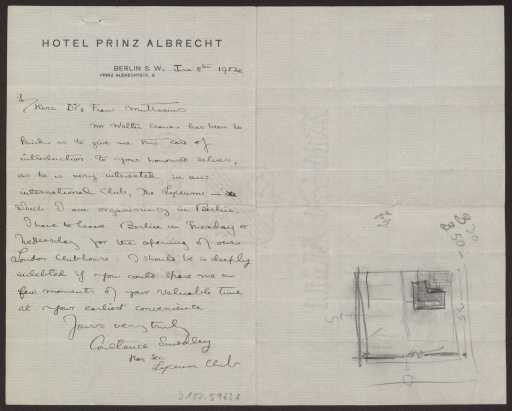 HOTEL PRINZ ALBRECHT
BERLIN S. W. June 5th 1904
PRINZ ALBRECHTSTR. 9
Herr Dr & Frau Muthesius
Mr Walter Crane has been so
kind as to give me this card of
introduction to your honoured selves,
as he is very interested in our
international Club, The Lyceum –
which I am organising in Berlin.
I have to leave Berlin on Tuesday or
Wednesday for the opening of our
London Clubhouse. I should be so deeply
indebted if you could spare me a
few moments of your valuable time
at your earliest convenience
Yours very truly
Constance Smedley
Hon Sec
Lyceum Club